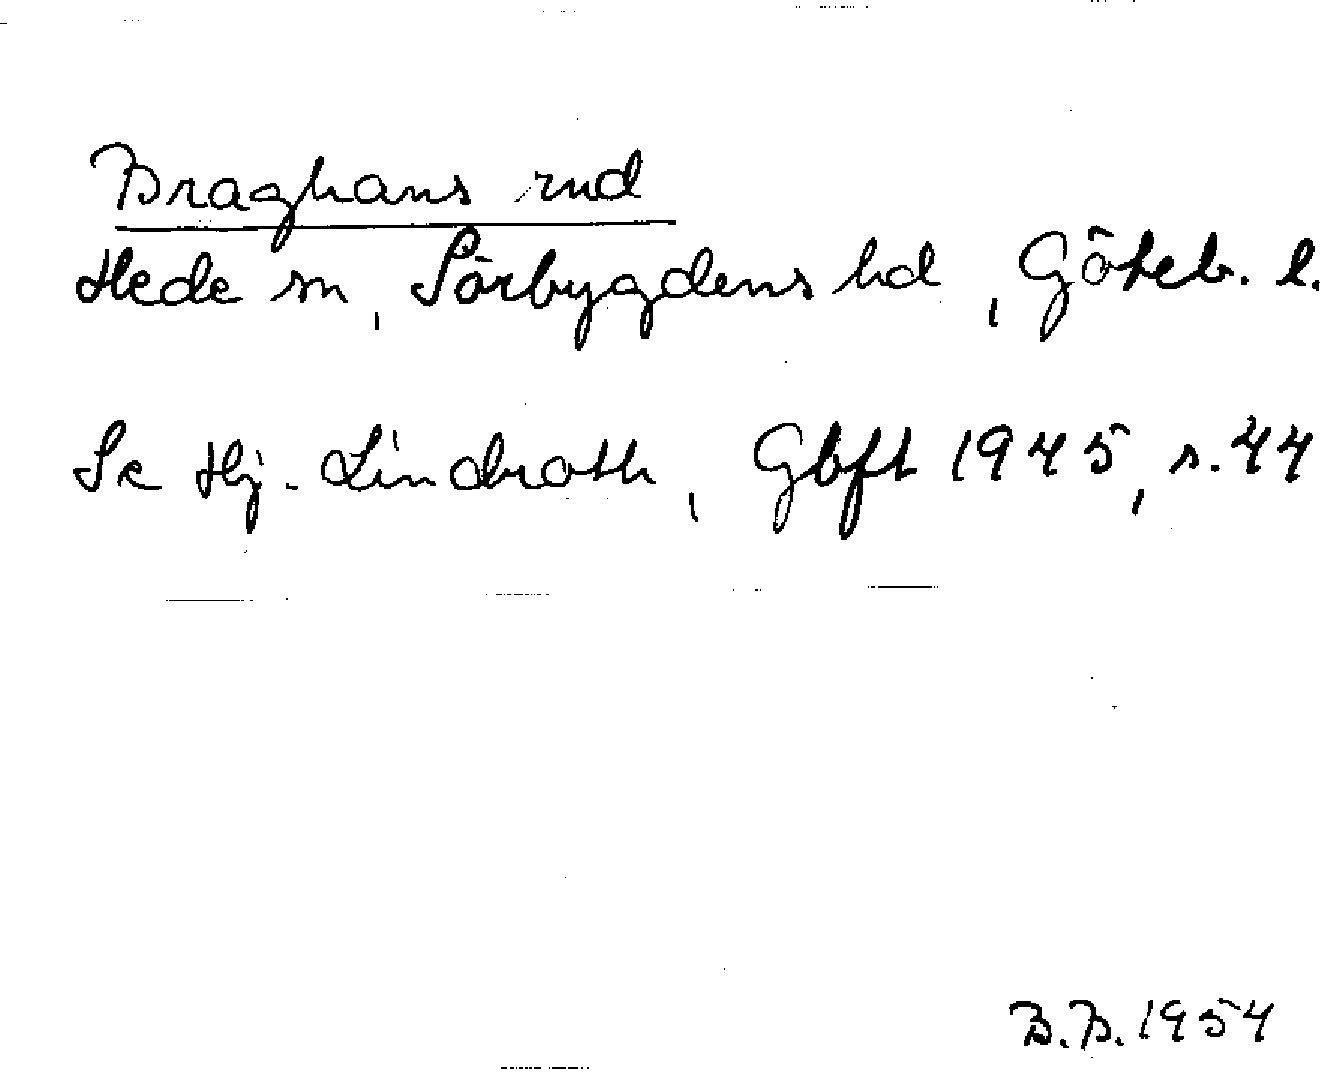 Braghans rud
Hede sn, Sörbygdens hd, Göteb. l.
Se Hj. Lindroth, Gbft 1945, s. 44
B.B. 1954